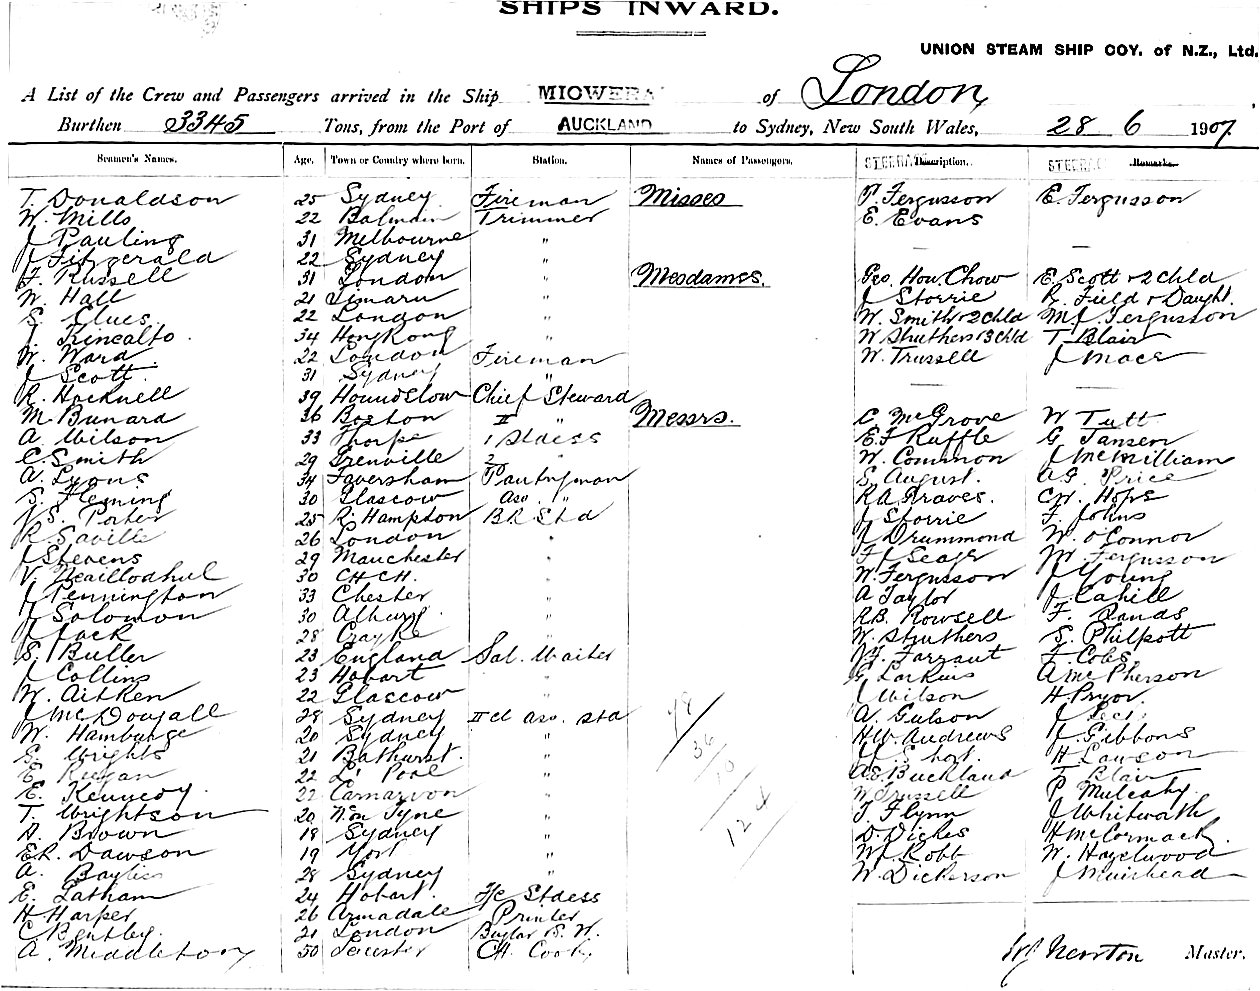 SHIPS INWARD.
UNION STEAM SHIP COY. of N.Z., Ltd.
A List of the Crew and Passengers arrived in the Ship MIOWERA of London,
Burthen 3345 Tons, from the Port of AUCKLAND to Sydney, New South Wales, 28 6 1907
Seamen's Names. Age. Town or Country where born. Station. Names of Passengers. STEERAGE Description. STEERAGE Remarks.
T. Donaldson 25 Sydney Fireman Misses P. Fergusson E. Fergusson
W. Mills 22 Balmain Trimmer E. Evans
J Pauling 31 Melbourne "
J Fitzgerald 22 Sydney "
F. Russell 31 London " Mesdames. Geo. How. Chow E. Scott + 2 chld
W. Hall 21 Timaru " J Storrie R. Field + Daught.
S. Clues 22 London " W. Smith + 2 chld M J Fergusson
J. Trincalto 34 HongKong " W Struthers 3 chld T Blair
W. Ward 22 London Fireman W. Trussell J Mace
J Scott 31 Sydney "
R. Hocknell 39 Hounslow Chief Steward
M. Bunard 36 Boston II " Messrs. C McGrove W Tutt
A. Wilson 33 Thorpe 1 Stdess E.J Ruffle G Jansen
C. Smith 29 Grenville 2 " W. Common J McMilliam
A. Lyons 34 Faversham Pantryman S. August. A.G. Price
S. Fleming 30 Glascow Ass. " R A Graves. C.W. Hope
J.S. Porter 25 R. Hampton B R Std J Storrie F. Johns
R Saville 26 London " J Drummond W. O'Connor
J Stevens 29 Manchester " F J Seager W Fergusson
V. 30 CH CH. " W. Fergusson J Young
J Pennington 33 Chester " A Taylor J. Cahill
J Solomon 30 Albury " R.B. Rowsell F. Sands
J Jack 28 Crayke " W. Struthers S. Philpott
S. Buller 23 England Sal. Waiter Farrant F. Cobs
J Collins 23 Hobart " G Larkins A McPherson
W. Aitken 22 Glascow " J Wilson H Pryor
J McDougall 28 Sydney IId ass. Std A. Gulson J
W. Hamburge 20 Sydney " H.W. Andrews J Gibbons
G. Wrights 21 Bathurst. " Short. H Lawson
E Keegan 22 L' Pool " A.E. Buckland T Blair
E. Kennedy 22 Carnarvon " W Trussell P Mulcahy
T. Wrightson 20 N. on Tyne " T. Flynn J Whitworth
A. Brown 18 Sydney " D. Dickes H McCormack
E.R. Dawson 19 York " W J Robb W. Hazelwood
A. Baylis 28 Sydney " W. Dickerson J Muirhead
E. Latham 24 Hobart F/c Stdess
H Harper 26 Armadale Printer
C Bentley. 21 London Buglar S.W.
A. Middleton 50 Leicester CH. Cook
78
36
10
124
W J Newton Master.